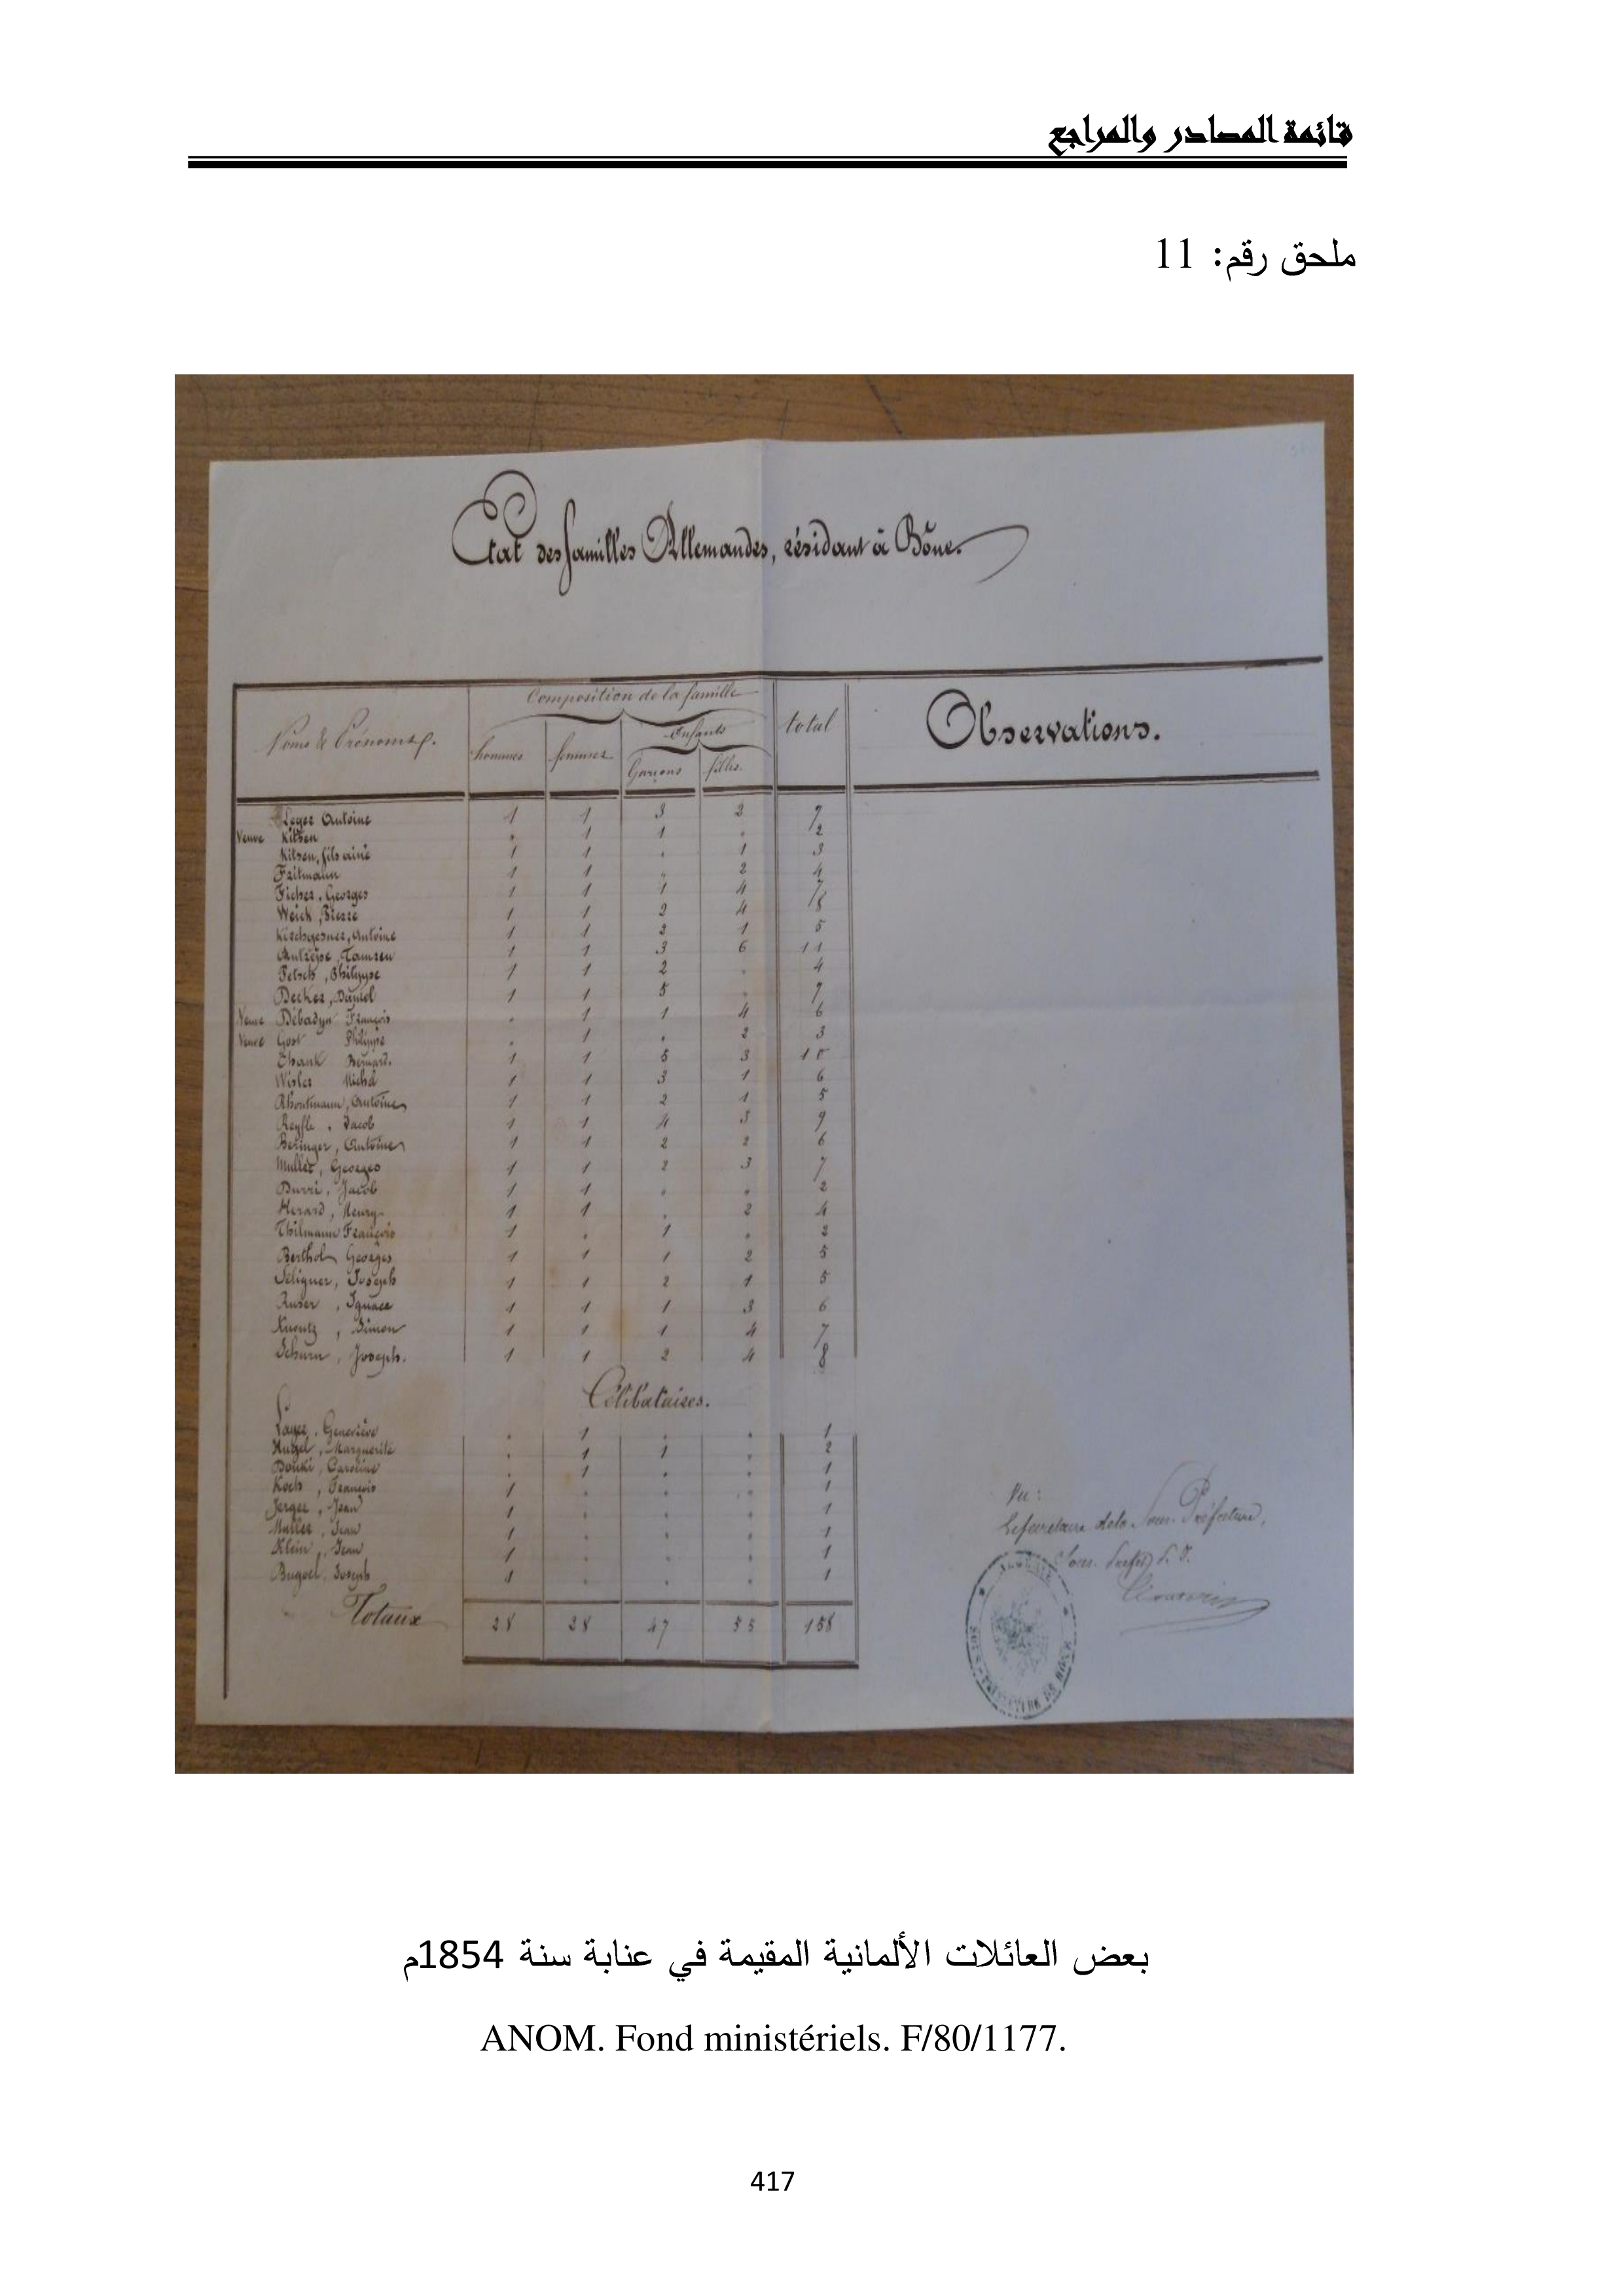 قائمة المصادر والمراجع
ملحق رقم: 11
Etat des familles Allemandes, résidant à Bône.
Noms & Prénoms. Composition de la famille total Observations.
hommes femmes Enfants
Garçons filles.
Leger Antoine 1 1 3 2 7
Veuve Kitsen . 1 1 . 2
Kitsen, fils ainé 1 1 . 1 3
Fritmann 1 1 . 2 4
Ficher, Georges 1 1 1 4 7
Weich, Pierre 1 1 2 4 8
Kirchgesner, Antoine 1 1 2 1 5
1 1 3 6 11
Petsch, Philippe 1 1 2 . 4
Decker, Daniel 1 1 5 . 7
Veuve Débadyn François . 1 1 4 6
Veuve Gost Philippe . 1 . 2 3
Thank Bernard. 1 1 5 3 10
Wisler Michel 1 1 3 1 6
Rhoutmann, Antoine 1 1 2 1 5
Reyfle, Jacob 1 1 4 3 9
Beringer, Antoine 1 1 2 2 6
Muller, Georges 1 1 2 3 7
Durri, Jacob 1 1 . . 2
Herard, Henry 1 1 . 2 4
Thilmann François 1 . 1 . 2
Berthol Georges 1 1 1 2 5
Seligner, Joseph 1 1 2 1 5
Ruser, Ignace 1 1 1 3 6
Knoutz, Simon 1 1 1 4 7
Schurn, Joseph. 1 1 2 4 8
Célibataires.
Layer, Geneviève . 1 . . 1
Hutzel, Marguerite . 1 1 . 2
Douki, Caroline . 1 . . 1
Koch, François 1 . . . 1
Jerger, Jean 1 . . . 1
Muller, Jean 1 . . . 1
Klein, Jean 1 . . . 1
Bugoel, Joseph 1 . . . 1
Totaux 28 28 47 55 158
Vu:
Le secrétaire de la Sous-Préfecture,
Sous-Préfet p. i.
ALGÉRIE
SOUS-PRÉFECTURE DE BÔNE
بعض العائلات الألمانية المقيمة في عنابة سنة 1854م
ANOM. Fond ministériels. F/80/1177.
417